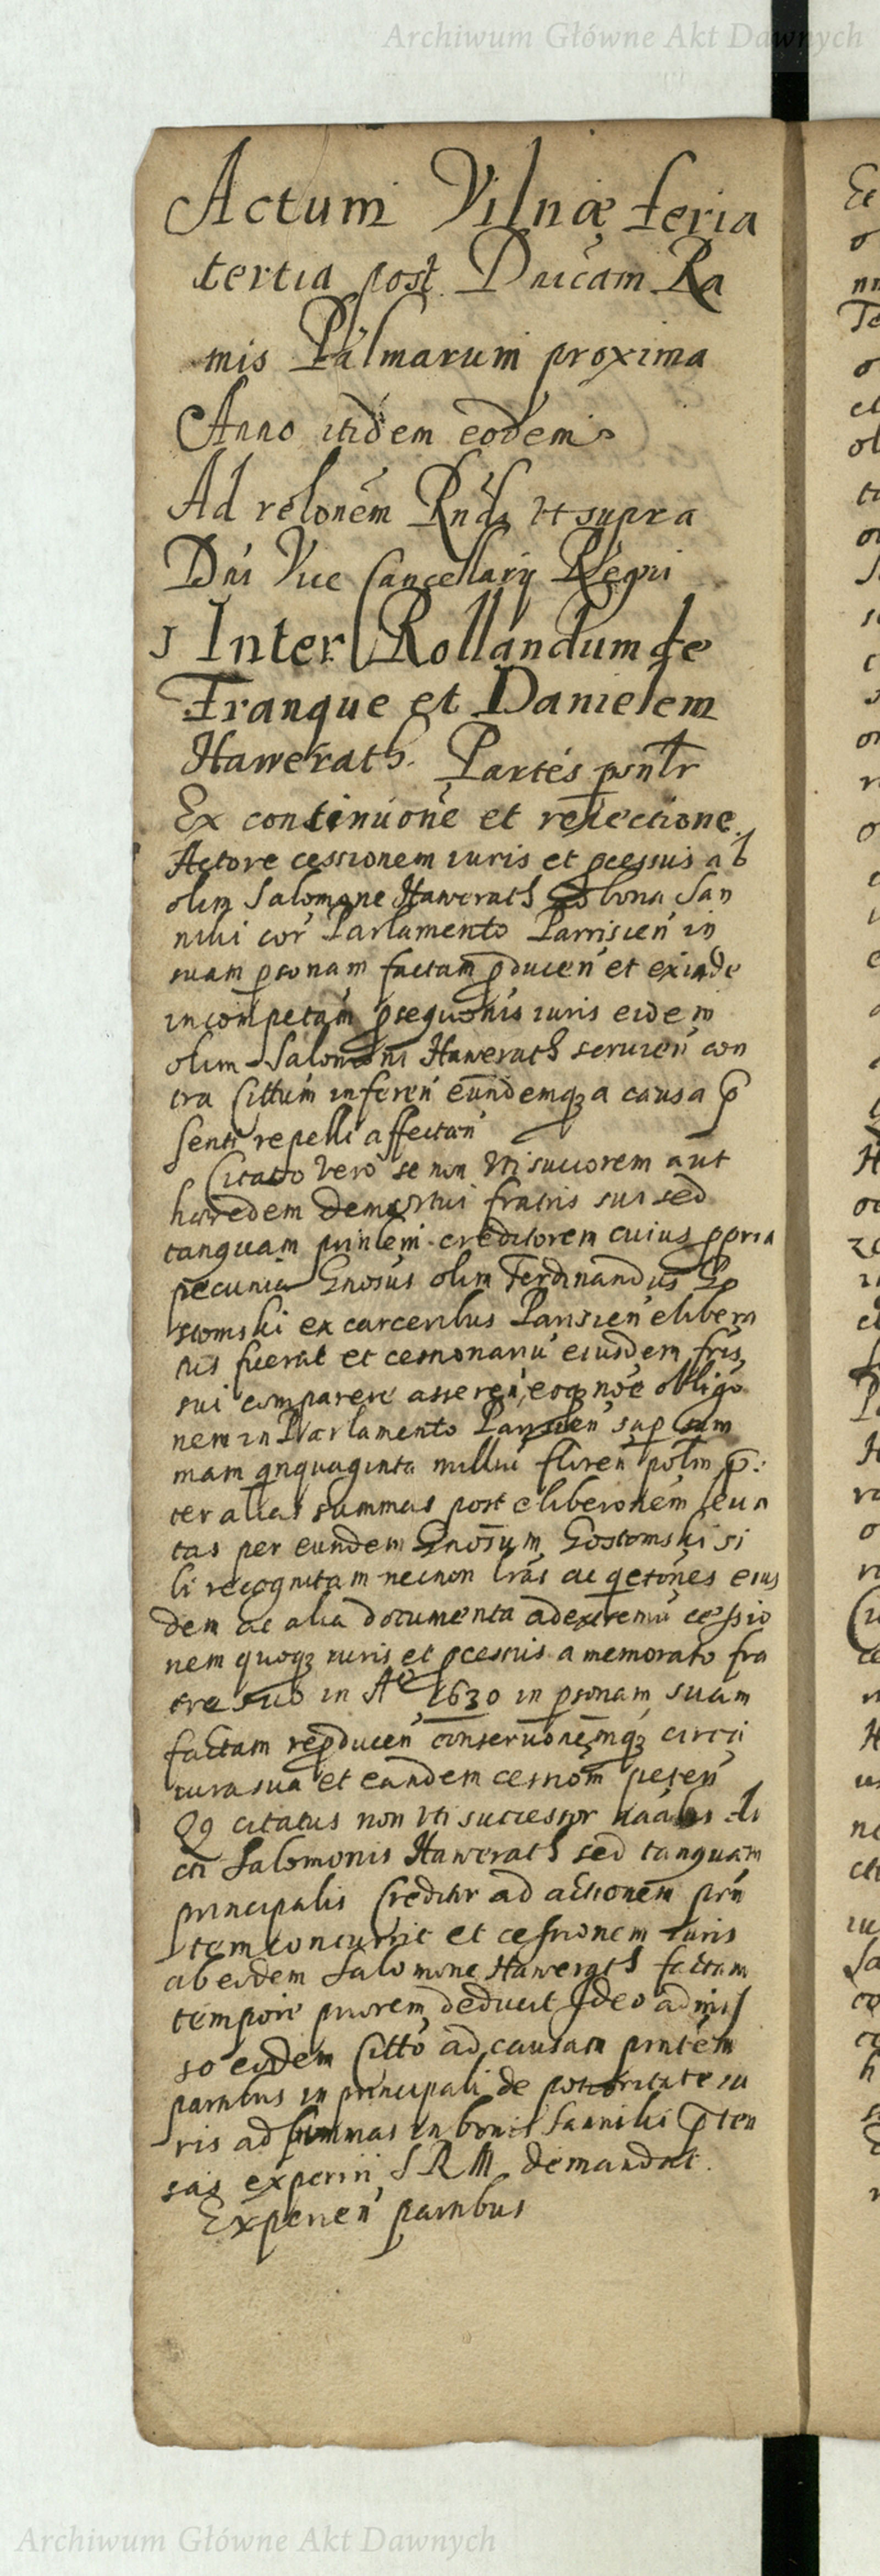 Archiwum Główne Akt Dawnych
Actum Vilnæ feria
tertia post Dnicam Ra
mis Palmarum proxima
Anno itidem eodem
Ad relonem Rndi ut supra
Dni Vice Cancellarij Regni
Inter Rollandum de
Franque et Danielem
Hawerath. Partes psntr
Ex continuone et reiectione
Actore cessionem iuris et pcessus ab
olim Salomone Hawerath bona San
niki cor Parlamento Parrisien in
suam psonam factam pducen et exinde
incompetam psequonis iuris eidem
olim Salomoni Hawerath seruien con
tra Cittum inferen eundemq3 a causa p
senti repelli affectan
Citato vero se non uti succorem aut
hæredem demortui fratris sui sed
tanquam prinlem creditorem cuius ppria
pecunia Gnosus olim Ferdinandus Go
stomski ex carceribus Parisien elibera
tus fuerat et cessionariu eiusdem fris
sui comparere asseren, eoq3 noe obligo
nem in Parlamento Parisien sup sum
mam qnquaginta millia floren polm p:
ter alias summas post eliberonem leua
tas per eundem Gnosum Gostomski si
bi recognitam necnon lras ac qetones eius
dem ac alia documenta ad extremu cessio
nem quoq3 iuris et pcessus a memorato fra
tre suo in Ao 1630 in psonam suam
factam repducen conseruonemq3 circa
iura sua et eandem cessiom peten
Qq citatus non uti successor di
cti Salomonis Hawerath sed tanquam
principalis Creditor ad actionem psn
tem concurrit et cessionem iuris
ab eodem Salomone Hawerath factam
tempore priorem deducit Ideo admis
so eodem Citto ad causam pnntem
partibus in principali de potioritate iu
ris ad summas in bonis Sanniki pten
sas experiri S R M demandat.
Experien partibus
Archiwum Główne Akt Dawnych